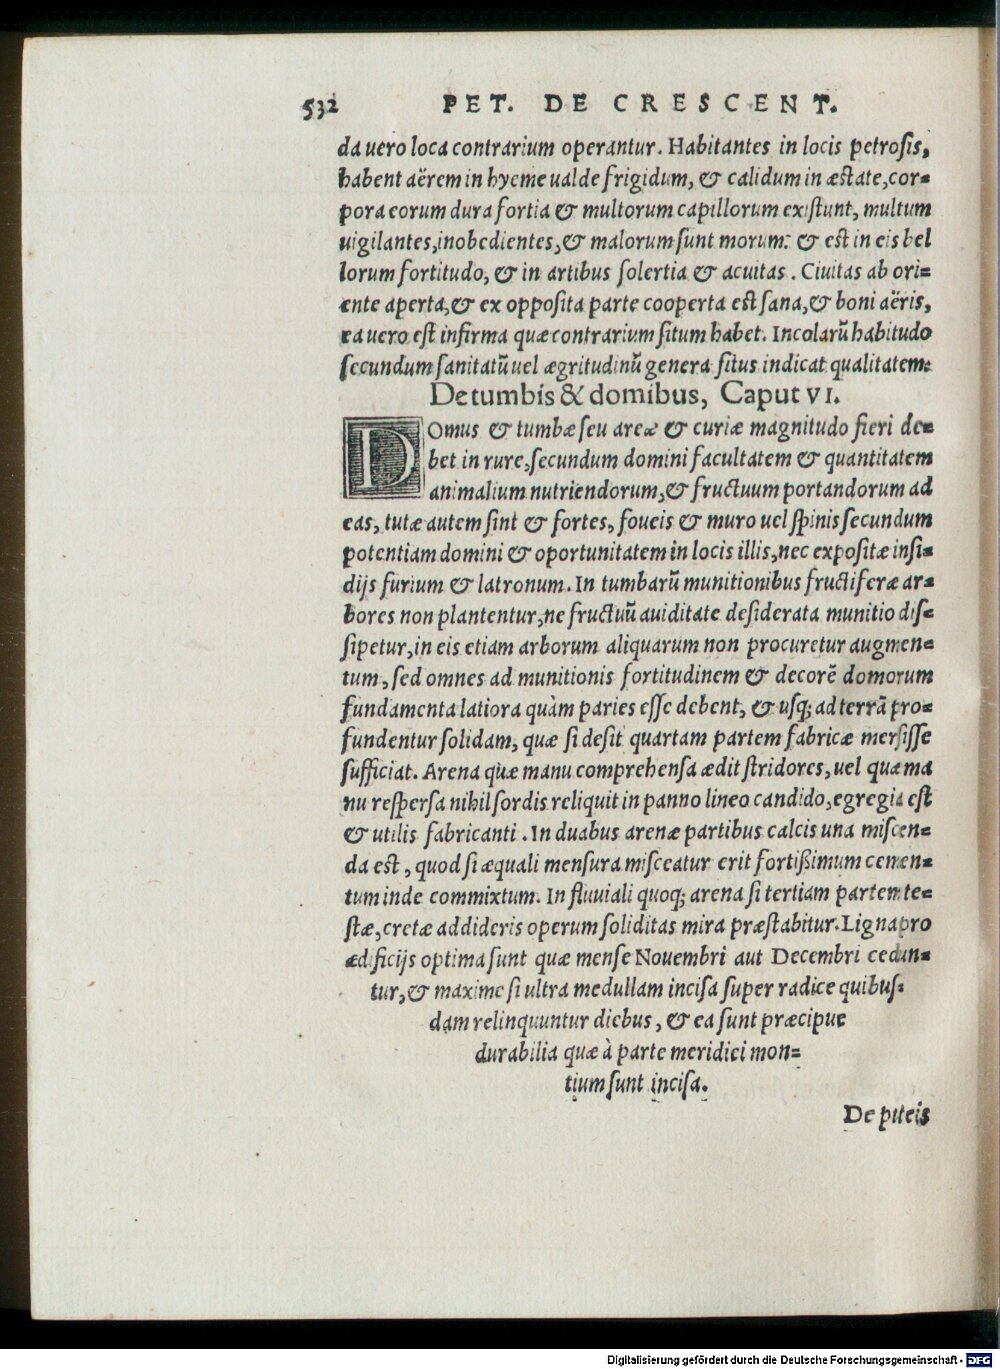 532 PET. DE CRESCENT.
da uero loca contrarium operantur. Habitantes in locis petrosis,
habent aërem in hyeme ualde frigidum, & calidum in æstate, cor=
pora eorum dura fortia & multorum capillorum existunt, multum
uigilantes, inobedientes, & malorum sunt morum: & est in eis bel
lorum fortitudo, & in artibus solertia & acuitas. Ciuitas ab ori=
ente aperta, & ex opposita parte cooperta est sana, & boni aëris,
ea uero est infirma quæ contrarium situm habet. Incolarũ habitudo
secundum sanitatũ uel ægritudinũ genera situs indicat qualitatem.
De tumbis & domibus, Caput VI.
DOmus & tumbæ seu areæ & curiæ magnitudo fieri de=
bet in rure, secundum domini facultatem & quantitatem
animalium nutriendorum, & fructuum portandorum ad
eas, tutæ autem sint & fortes, foueis & muro uel spinis secundum
potentiam domini & oportunitatem in locis illis, nec expositæ insi=
dijs furium & latronum. In tumbarũ munitionibus fructiferæ ar=
bores non plantentur, ne fructuũ auiditate desiderata munitio dis=
sipetur, in eis etiam arborum aliquarum non procuretur augmen=
tum, sed omnes ad munitionis fortitudinem & decorẽ domorum
fundamenta latiora quàm paries esse debent, & usq; ad terrã pro=
fundentur solidam, quæ si desit quartam partem fabricæ mersisse
sufficiat. Arena quæ manu comprehensa ædit stridores, uel quæ ma
nu respersa nihil sordis reliquit in panno lineo candido, egregia est
& utilis fabricanti. In duabus arenæ partibus calcis una miscen=
da est, quod si æquali mensura misceatur erit fortißimum cemen=
tum inde commixtum. In fluuiali quoq; arena si tertiam partem te=
stæ, cretæ addideris operum soliditas mira præstabitur. Ligna pro
ædificijs optima sunt quæ mense Nouembri aut Decembri cedan=
tur, & maxime si ultra medullam incisa super radice quibus=
dam relinquuntur diebus, & ea sunt præcipue
durabilia quæ à parte meridiei mon=
tium sunt incisa.
De piteis
Digitalisierung gefördert durch die Deutsche Forschungsgemeinschaft - DFG